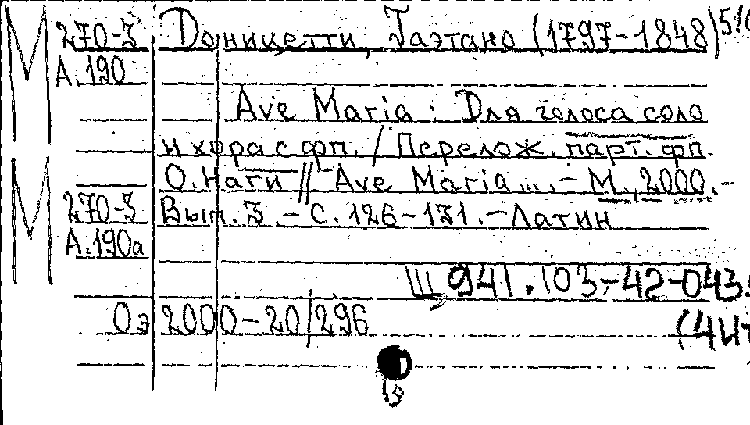 М 270-3 Доницетти, Гаэтано (1797-1848)
А.190
Ave Maria: Для голоса соло
и хора с фп. / Перелож. парт. фп.
О. Наги // Ave Maria... - М., 2000. -
М 270-3 Вып. 3. - С. 126-131. - Латин
А.190а
Щ 941.103-42-043.
Оэ 2000-20/296
(4Ит